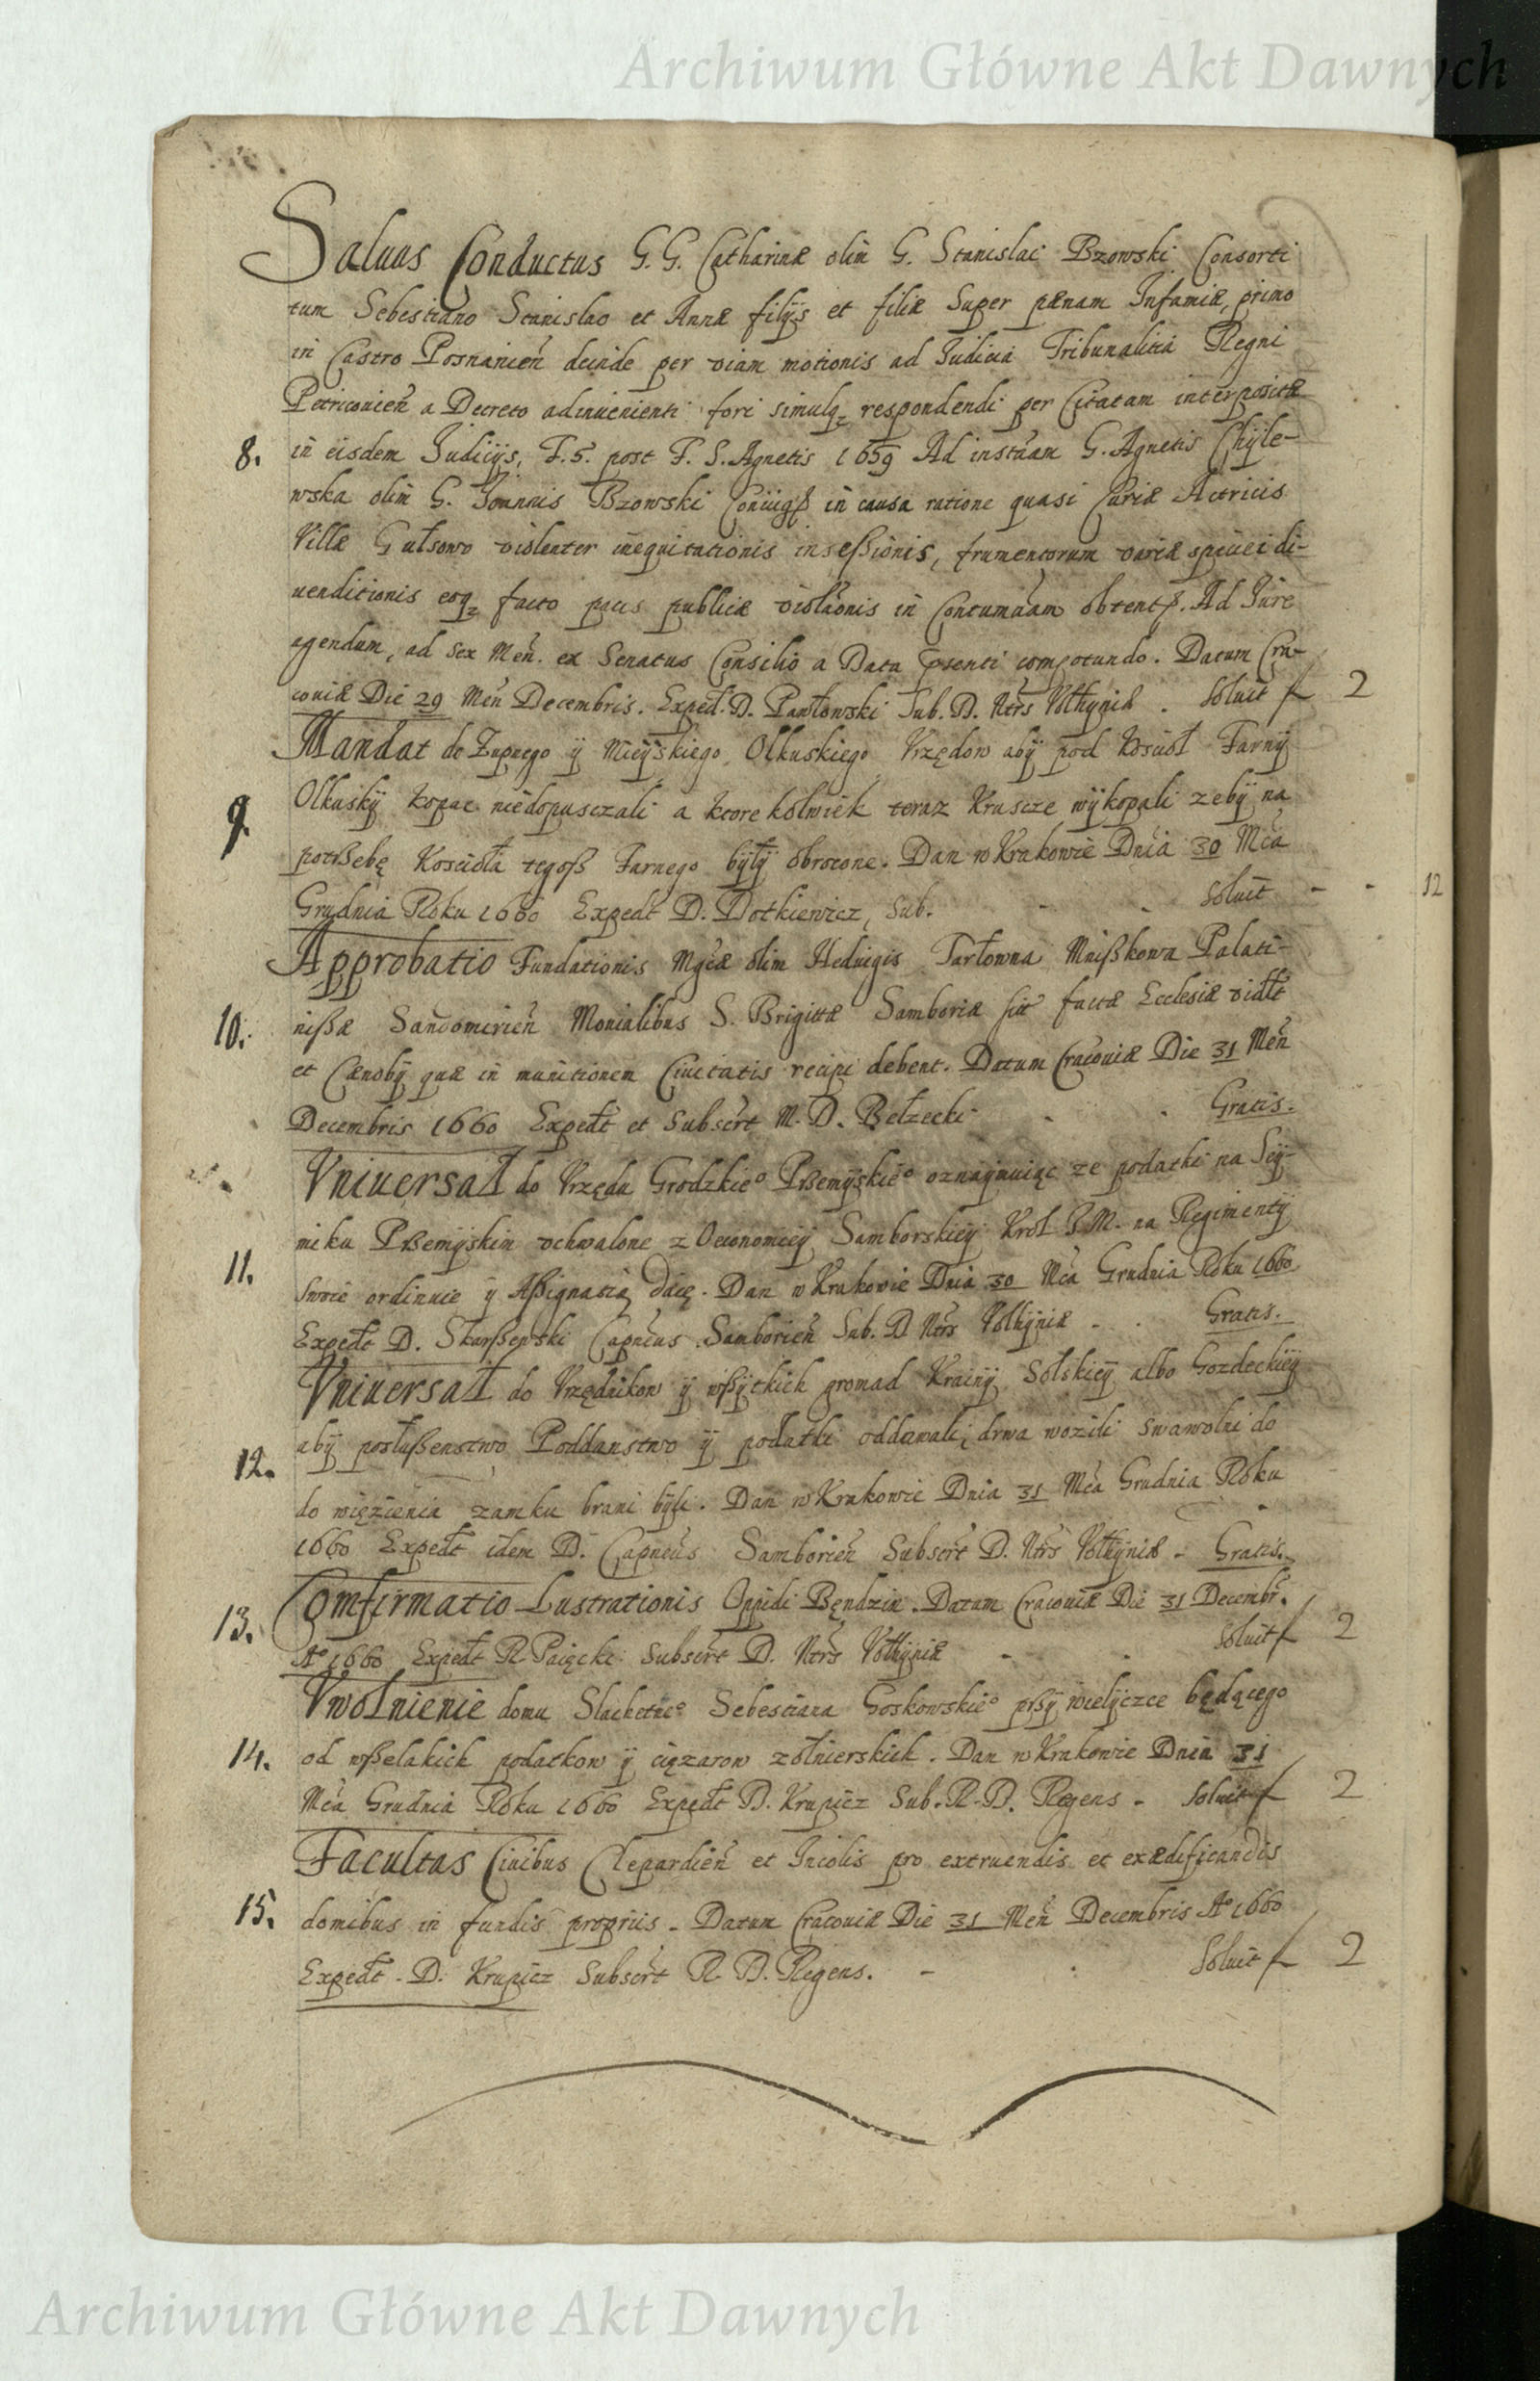 Archiwum Główne Akt Dawnych
Saluus Conductus G. G. Catharinæ olim G. Stanislai Bzowski Consorti
tum Sebestiano Stanislao et Annæ filijs et filiæ Super pænam Infamiæ, primo
in Castro Posnanien̄ deinde per viam motionis ad Iudicia Tribunalitia Regni
Petricouien̄ a Decreto adinuenienti fori simulq; respondendi per Citatam interpositæ
8. in eisdem Iudicijs, F. 5. post F. S. Agnetis 1659 Ad inst̄am G. Agnetis Chyle-
wska olim G. Ioannis Bzowski Coniugis in causa ratione quasi Curiæ Actricis
Villæ Gułsowo violenter inequitationis insessionis, frumentorum variæ speciei di-
uenditionis eoq; facto pacis publicæ viola͠onis in Contuma͠am obtent. Ad Iure
agendum, ad sex Men̄. ex Senatus Consilio a Data p̄senti computando. Datum Cra-
couiæ Die 29 Men̄ Decembris. Exped. D. Pawłowski Sub. D. Nt̄rs Volhyniæ . Soluit f 2
Mandat do Zupnego ÿ Mieÿskiego Olkuskiego Vrzędow abÿ pod Kosciół Farnÿ
9. Olkuskÿ kopac niedopusczali a ktorekolwiek teraz Kruscze wÿkopali zebÿ na
potrßebę Kosciola tegoß Farnego bÿłÿ obrocone. Dan w Krakowie Dnia 30 Mc̄a
Grudnia Roku 1660 Expedt D. Dotkiewicz, Sub. - - Soluit - - 12
Approbatio Fundationis Mgc̄æ olim Heduigis Tarłowna Mnißkowa Palati-
10. nißæ Sandomirien̄ Monialibus S. Brigittæ Samboriæ sitt factæ Ecclesiæ vidlt
et Cænobÿ quæ in munitionem Ciuitatis recipi debent. Datum Cracouiæ Die 31 Men̄
Decembris 1660 Expedt et Subscr̄t M. D. Bełzecki - - Gratis.
Vniuersał do Vrzędu Grodzkie° Prßemÿskie° oznaÿmuiąc ze podatki na Seÿ-
miku Prßemÿskim vchwalone z Oeconomieÿ Samborskieÿ Krol J. M. na Regimentÿ
11. Swoie ordinuie ÿ Aßignatią daię. Dan w Krakowie Dnia 30 Mc̄a Grudnia Roku 1660
Expedt D. Skarßewski Capneus Samborien̄ Sub. D Nt̄rs Volhÿniæ - . Gratis.
Vniuersał do Vrzędnikow ÿ wßÿtkich gromad Krainÿ Solskieÿ albo Gozdeckieÿ
abÿ posłußenstwo Poddanstwo ÿ podatki oddawali, drwa wozili swawolni do
12. do więzienia zamku brani bÿli. Dan w Krakowie Dnia 31 Mc̄a Grudnia Roku
1660 Expedt idem D. Capneus Samborien̄ Subscr̄t D. Nt̄rs Volhÿniæ - Gratis.
Comfirmatio Lustrationis Oppidi Bęndzin. Datum Cracouiæ Die 31 Decembr.
13. A° 1660 Expedt R. Paięcki Subscr̄t D. Nt̄rs Volhÿniæ - - Soluit f 2
Vwolnienie domu Slachetne° Sebestiana Goskowskie° prßÿ wielÿczce będącego
14. od wßelakich podatkow ÿ cięzarow zołnierskich. Dan w Krakowie Dnia 31
Mc̄a Grudnia Roku 1660 Expedt D. Krupicz Sub. R. D. Regens - Soluit f 2
Facultas Ciuibus Clepardien̄ et Incolis pro extruendis et exædificandis
15. domibus in fundis propriis. Datum Cracouiæ Die 31 Men̄ Decembris A° 1660
Expedt. D. Krupicz Subscr̄t R. D. Regens. - - Soluit f 2
Archiwum Główne Akt Dawnych